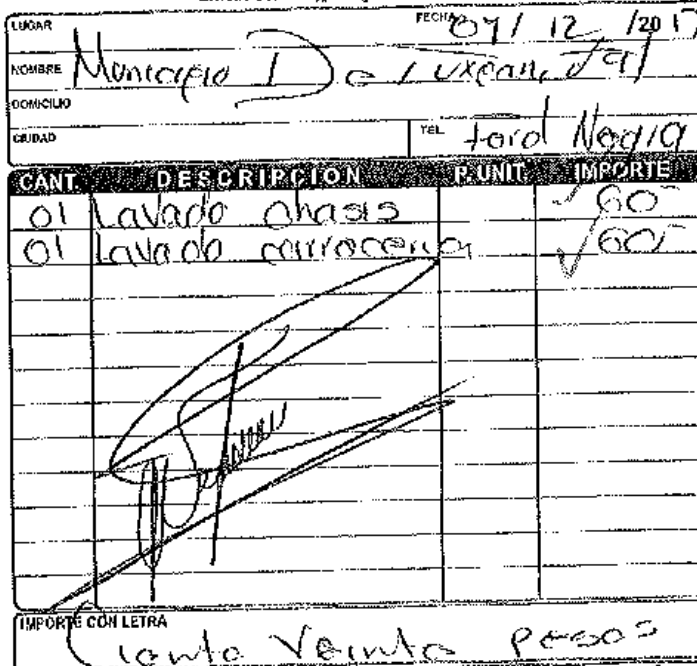 LUGAR FECHA 07/ 12 /2017
NOMBRE Municipio De Tuxcan
DOMICILIO
CIUDAD TEL. ford Negra
CANT. DESCRIPCIÓN P. UNIT. IMPORTE
01 Lavado chasis 60-
01 Lavado carroceria 60-
IMPORTE CON LETRA Ciento Veinte pesos